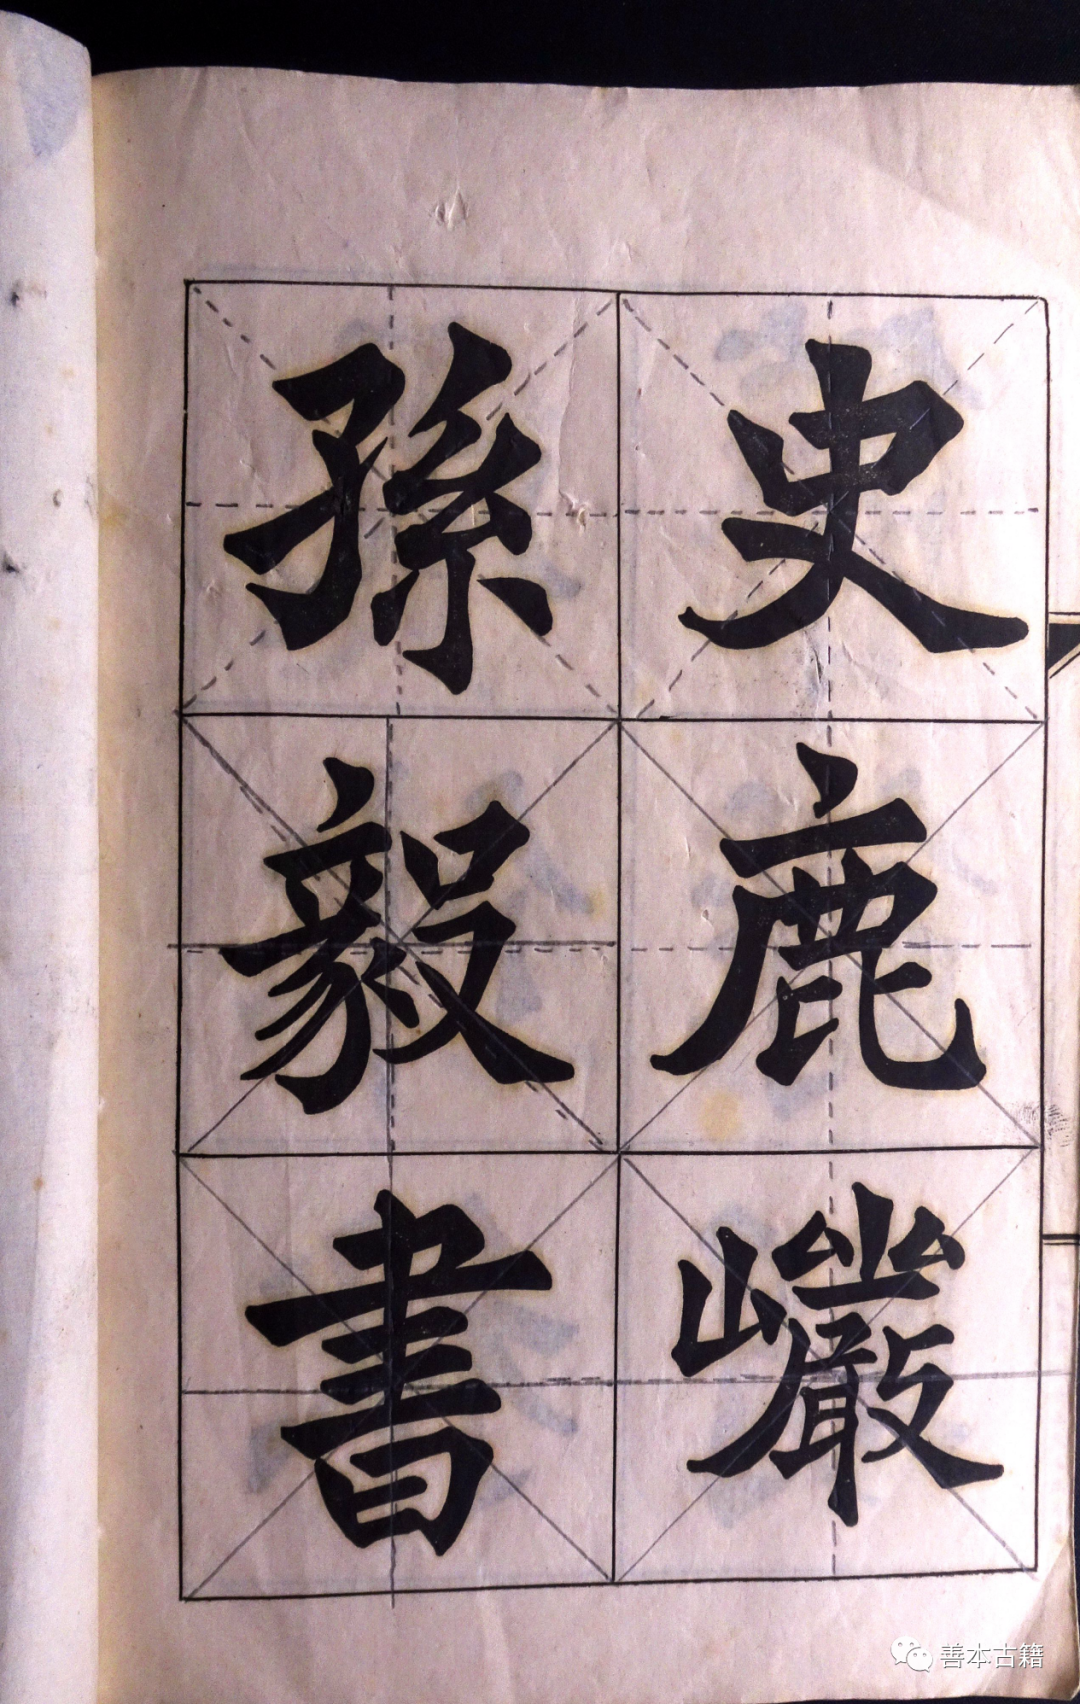 史鹿巖
孫毅書
善本古籍